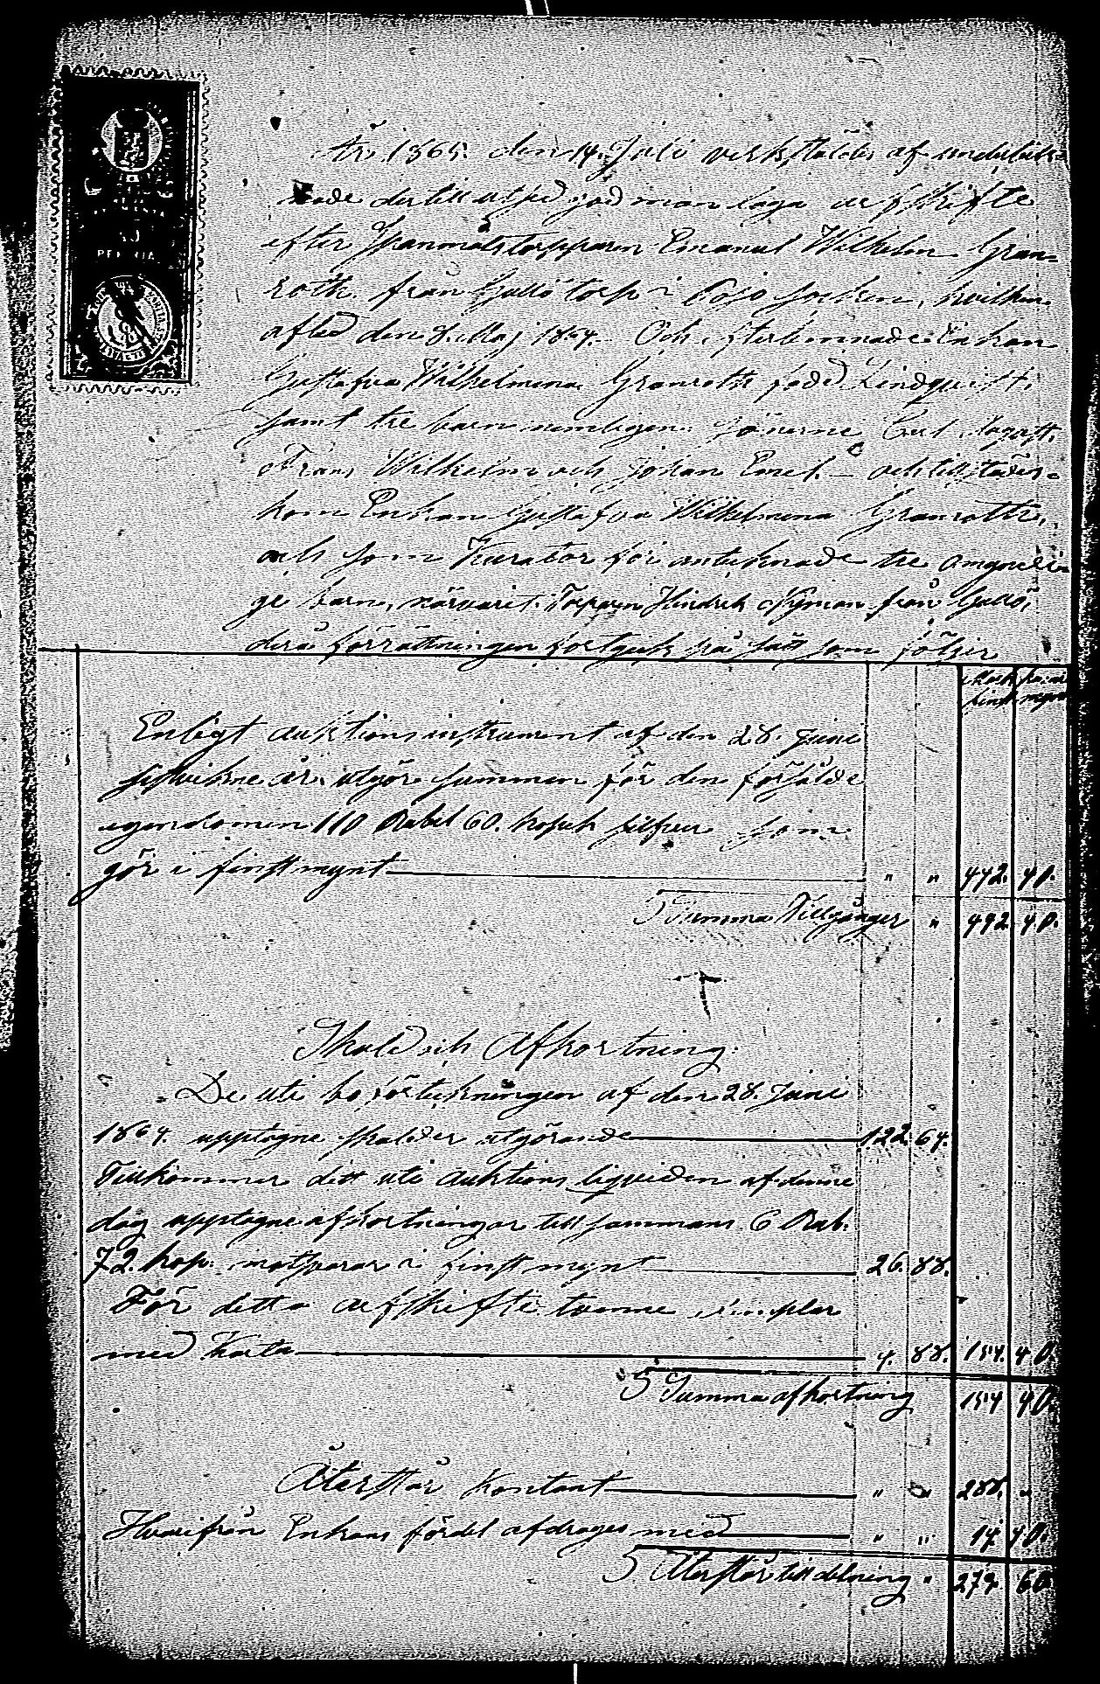 År 1865 den 14 Juli verkstäldes af undertek-
nade dertill utsedd god man laga arfskifte
efter Spanmålstorpparen Emanuel Wilhelm Gran-
roth från Gullö torp i Pojo Socken, hvilken
afled den 8 Maj 1864. Och efterlemnade Enkan
Gustafva Wilhelmina Granroth född Lindqvist,
samt tre barn nemligen: Sönerne Carl August,
Frans Wilhelm och Johan Emel och tillstädes-
kom Enkan Gustafva Wilhelmina Granroth,
och som Kurator för anteknade tre omyndi-
ge barn, närvarit Torparen Hindrik Nyman från Gullö,
derå förrättningen fortgick på sätt som följer
Mark penni
finst mynt
Enligt auktions instrument af den 28. Juni
sistvikne år utgör summan för den försålde
egendomen 110 Rubel 60. kopek silfver som
gör i finst mynt " " 442. 40.
S Summa Tillgånger " 442 40.
Skuld och Afkortning
De uti boförtekningen af den 28. Juni
1864 upptagne skulder utgörande 122. 64.
Tillkommer ditt uti auktions liqviden af denne
dag upptagne afkortningar tillsammans 6 Rub.
72. kop. motsvarar i finst mynt 26. 88.
För detta arfskifte tvenne exemplar
med Karta 4. 88. 154. 40.
S Summa afkortning 154 40.
Återstår kontant " " 288. "
Hvarifrån Enkans fördel afdrages med " " 14. 40.
S Återstår till delning " 273. 60